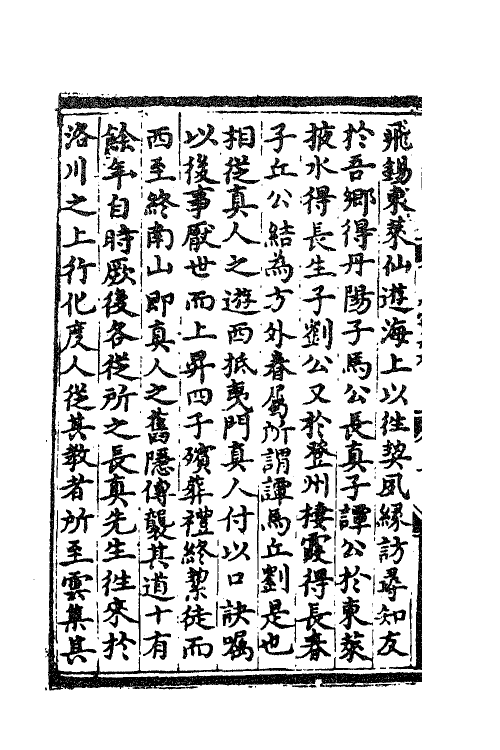 飛錫東萊仙遊海上以徃契夙緣訪尋知友
於吾鄉得丹陽子馬公長真子譚公於東萊
掖水得長生子劉公又於登州棲霞得長春
子丘公結為方外眷屬所謂譚馬丘劉是也
相從真人之遊西抵夷門真人付以口訣囑
以後事厭世而上昇四子殯葬禮終挈徒而
西至終南山即真人之舊隱傳襲其道十有
餘年自時厥後各從所之長真先生徃來於
洛川之上行化度人從其教者所至雲集其